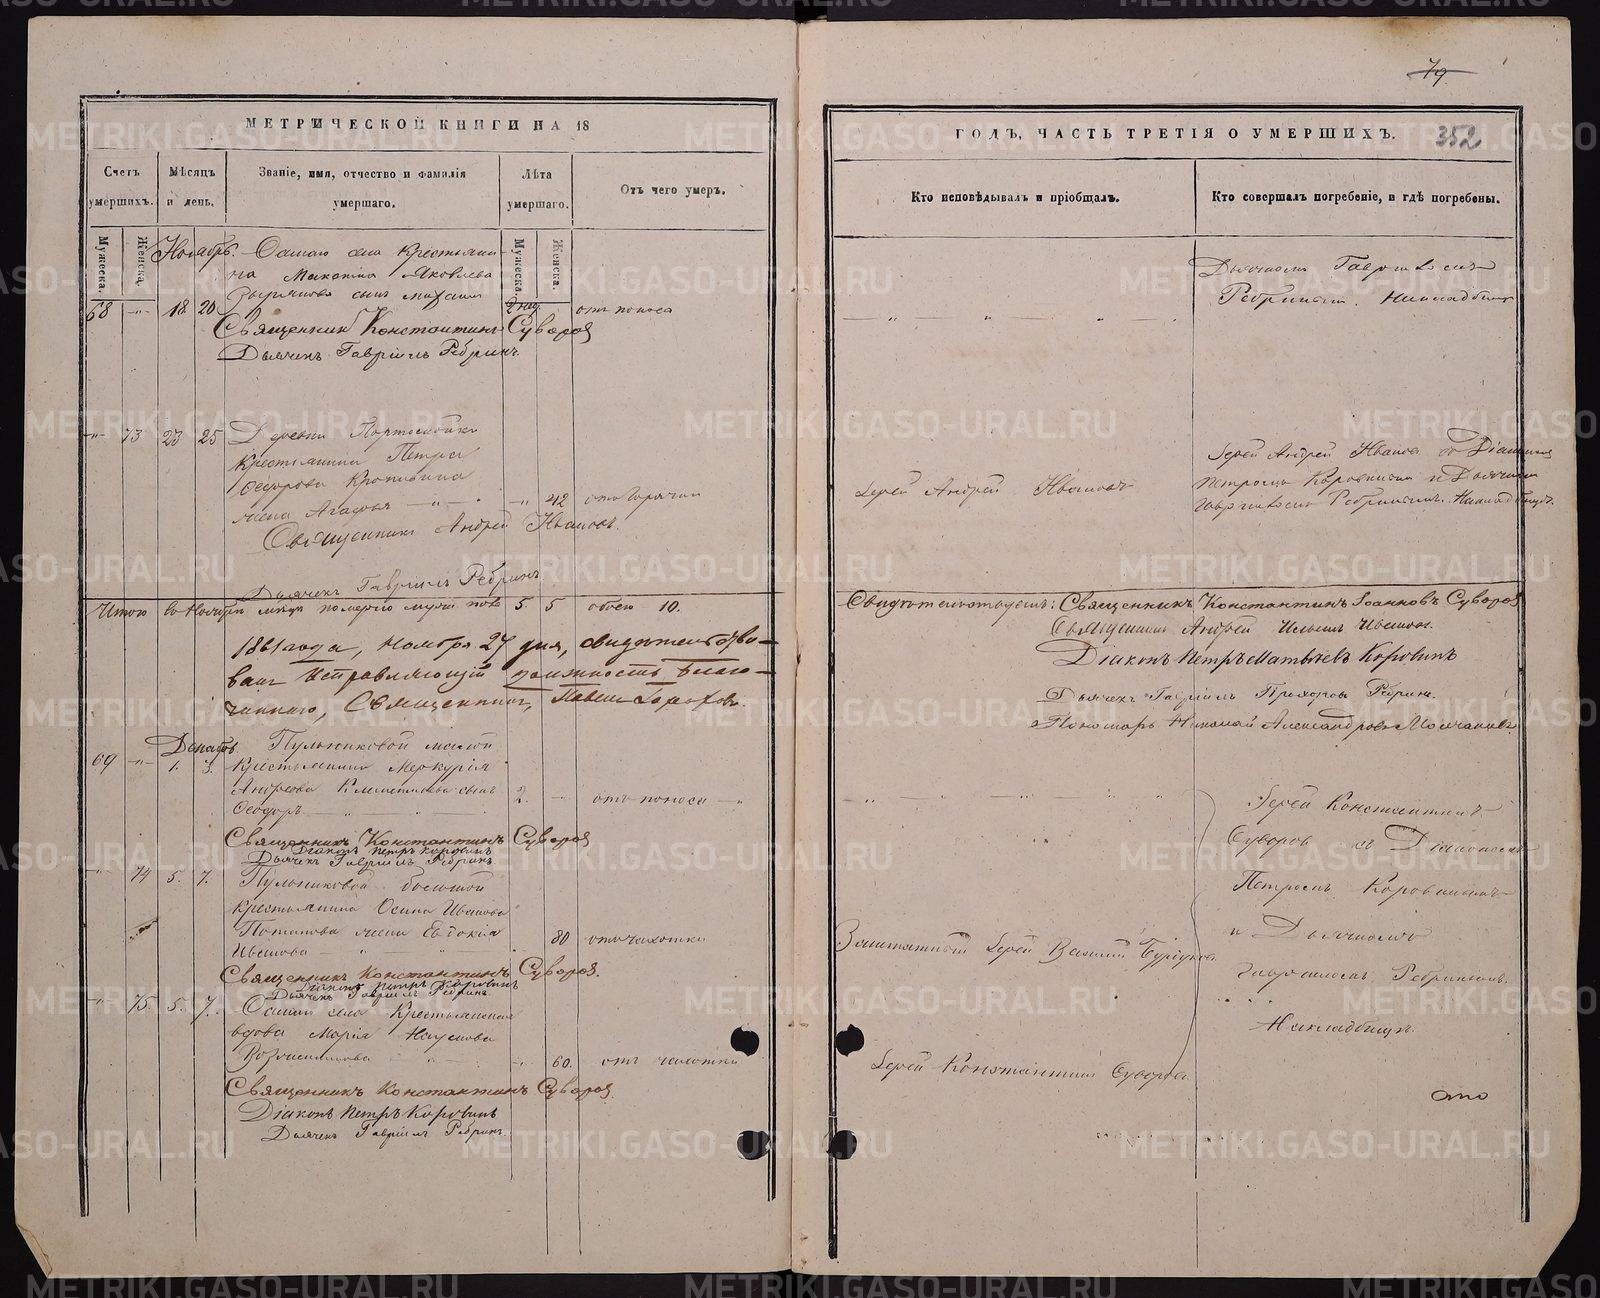 МЕТРИЧЕСКОЙ КНИГИ НА 18
Счетъ умершихъ.
Мужеска.
Женска.
Мѣсяцъ и день.
Званіе, имя, отчество и фамилія умершаго.
Лѣта умершаго.
Мужеска.
Женска.
Отъ чего умеръ.
Ноябрь. села Крестьяни-
на Яковлева
сынъ
68 18 20 2 нед. отъ поноса
Священникъ Константинъ Суворов
Дьячекъ Гавріилъ Ребринъ.
73 23 25 Деревни
Крестьянина Петра
Ѳедорова
жена Агафья 42 отъ горячки
Священникъ Андрей Ивановъ.
Дьячекъ Гавріилъ Ребринъ
Итого въ Ноябрѣ померло муж 5. 5 обоего 10.
1861 года, Ноября 27 дня, свидетельство-
валъ Исправляющій должность Благо-
чиннаго, Священникъ, Павелъ
Декабрь Пульниковой малой
69 1. 3. Крестьянина Меркурія
Андреева сынъ 2. отъ поноса
Ѳеодоръ
Священникъ Константинъ Суворов
Діаконъ Петръ Коровинъ
Дьячекъ Гавріилъ Ребринъ
74 5. 7. Пульниковой большой
крестьянина Осипа Иванова
Потапова жена Евдокія 80 отъ чахотки
Иванова
Священникъ Константинъ Суворов.
Діаконъ Петръ Коровинъ
Дьячекъ Гавріилъ Ребринъ
75. 5. 7. села Крестьянская
вдова Марія Наумова
60. отъ чахотки
Священникъ Константинъ Суворов.
Діаконъ Петръ Коровинъ
Дьячекъ Гавріилъ Ребринъ.
79
ГОДЪ, ЧАСТЬ ТРЕТІЯ О УМЕРШИХЪ. 352
Кто исповѣдывалъ и пріобщалъ.
Кто совершалъ погребеніе, и гдѣ погребены.
Дьячкомъ Гавріиломъ
Ребринымъ. На кладбищѣ
Іерей Андрей Ивановъ
Іерей Андрей Ивановъ съ Діакономъ
Петромъ Коровинымъ и Дьячкомъ
Гавріиломъ Ребринымъ. На кладбищѣ.
Свидѣтельствуемъ: Священникъ Константинъ Іоанновъ Суворов
Священникъ Андрей Ильинъ Ивановъ.
Діаконъ Петръ Матвѣевъ Коровинъ
Дьячекъ Гавріилъ Прохоровъ Ребринъ.
Пономарь Николай Александровъ Молчановъ
Іерей Константинъ
Суворовъ съ Діакономъ
Петромъ Коровинымъ
и Дьячкомъ
Гавріиломъ Ребринымъ.
На кладбищѣ.
Заштатный Іерей Василій
Іерей Константинъ Суворовъ
METRIKI.GASO-URAL.RU